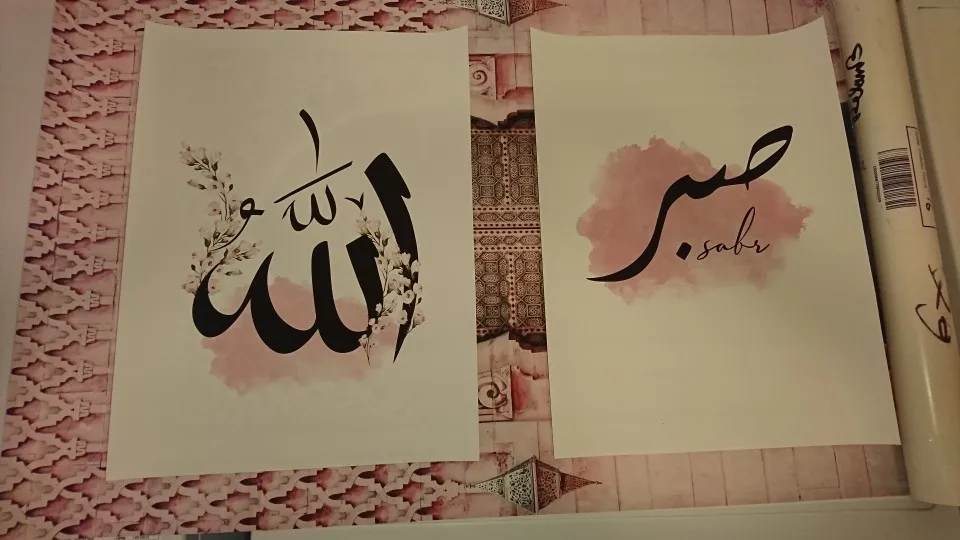 الله
صبر
sabr